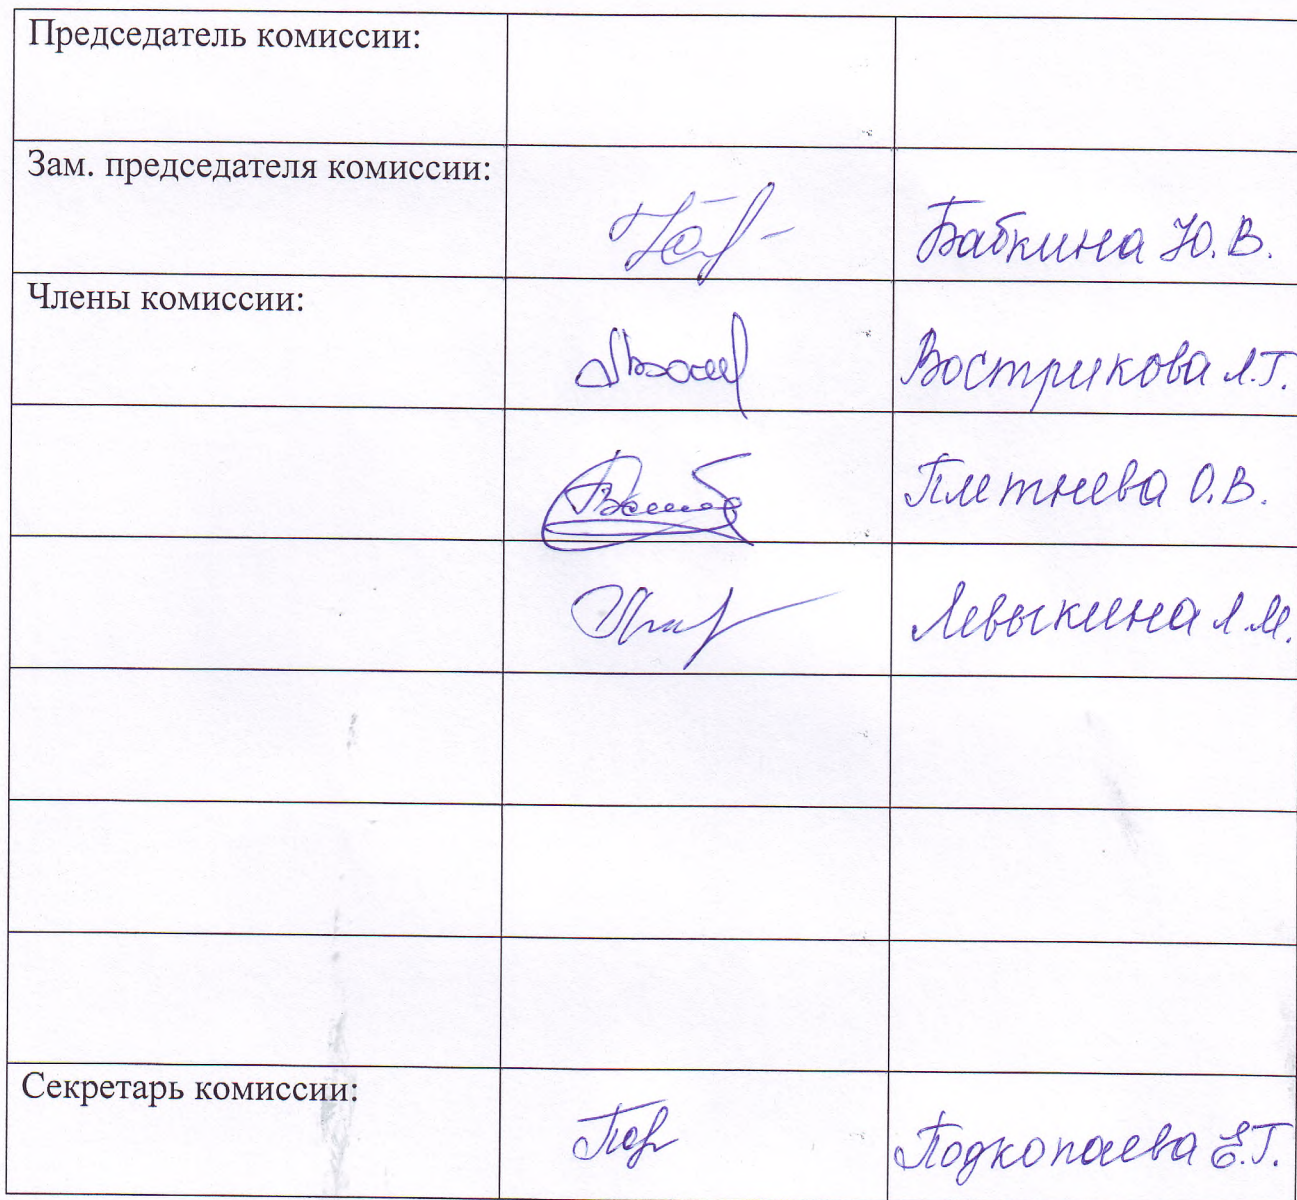 Председатель комиссии:
Зам. председателя комиссии:
Бабкина Ю. В.
Члены комиссии:
Вострикова Л.Г.
Плетнева О.В.
Левыкина Л.М.
Секретарь комиссии:
Подкопаева Е.Г.